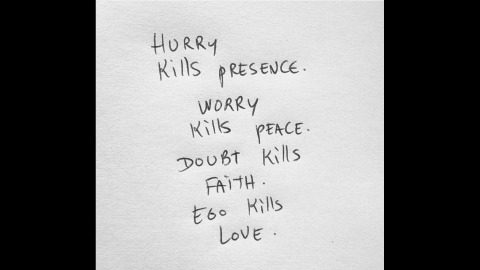 HURRY
Kills PRESENCE.
WORRY
Kills PEACE.
DOUBT Kills
FAiTH.
EGO Kills
LOVE.